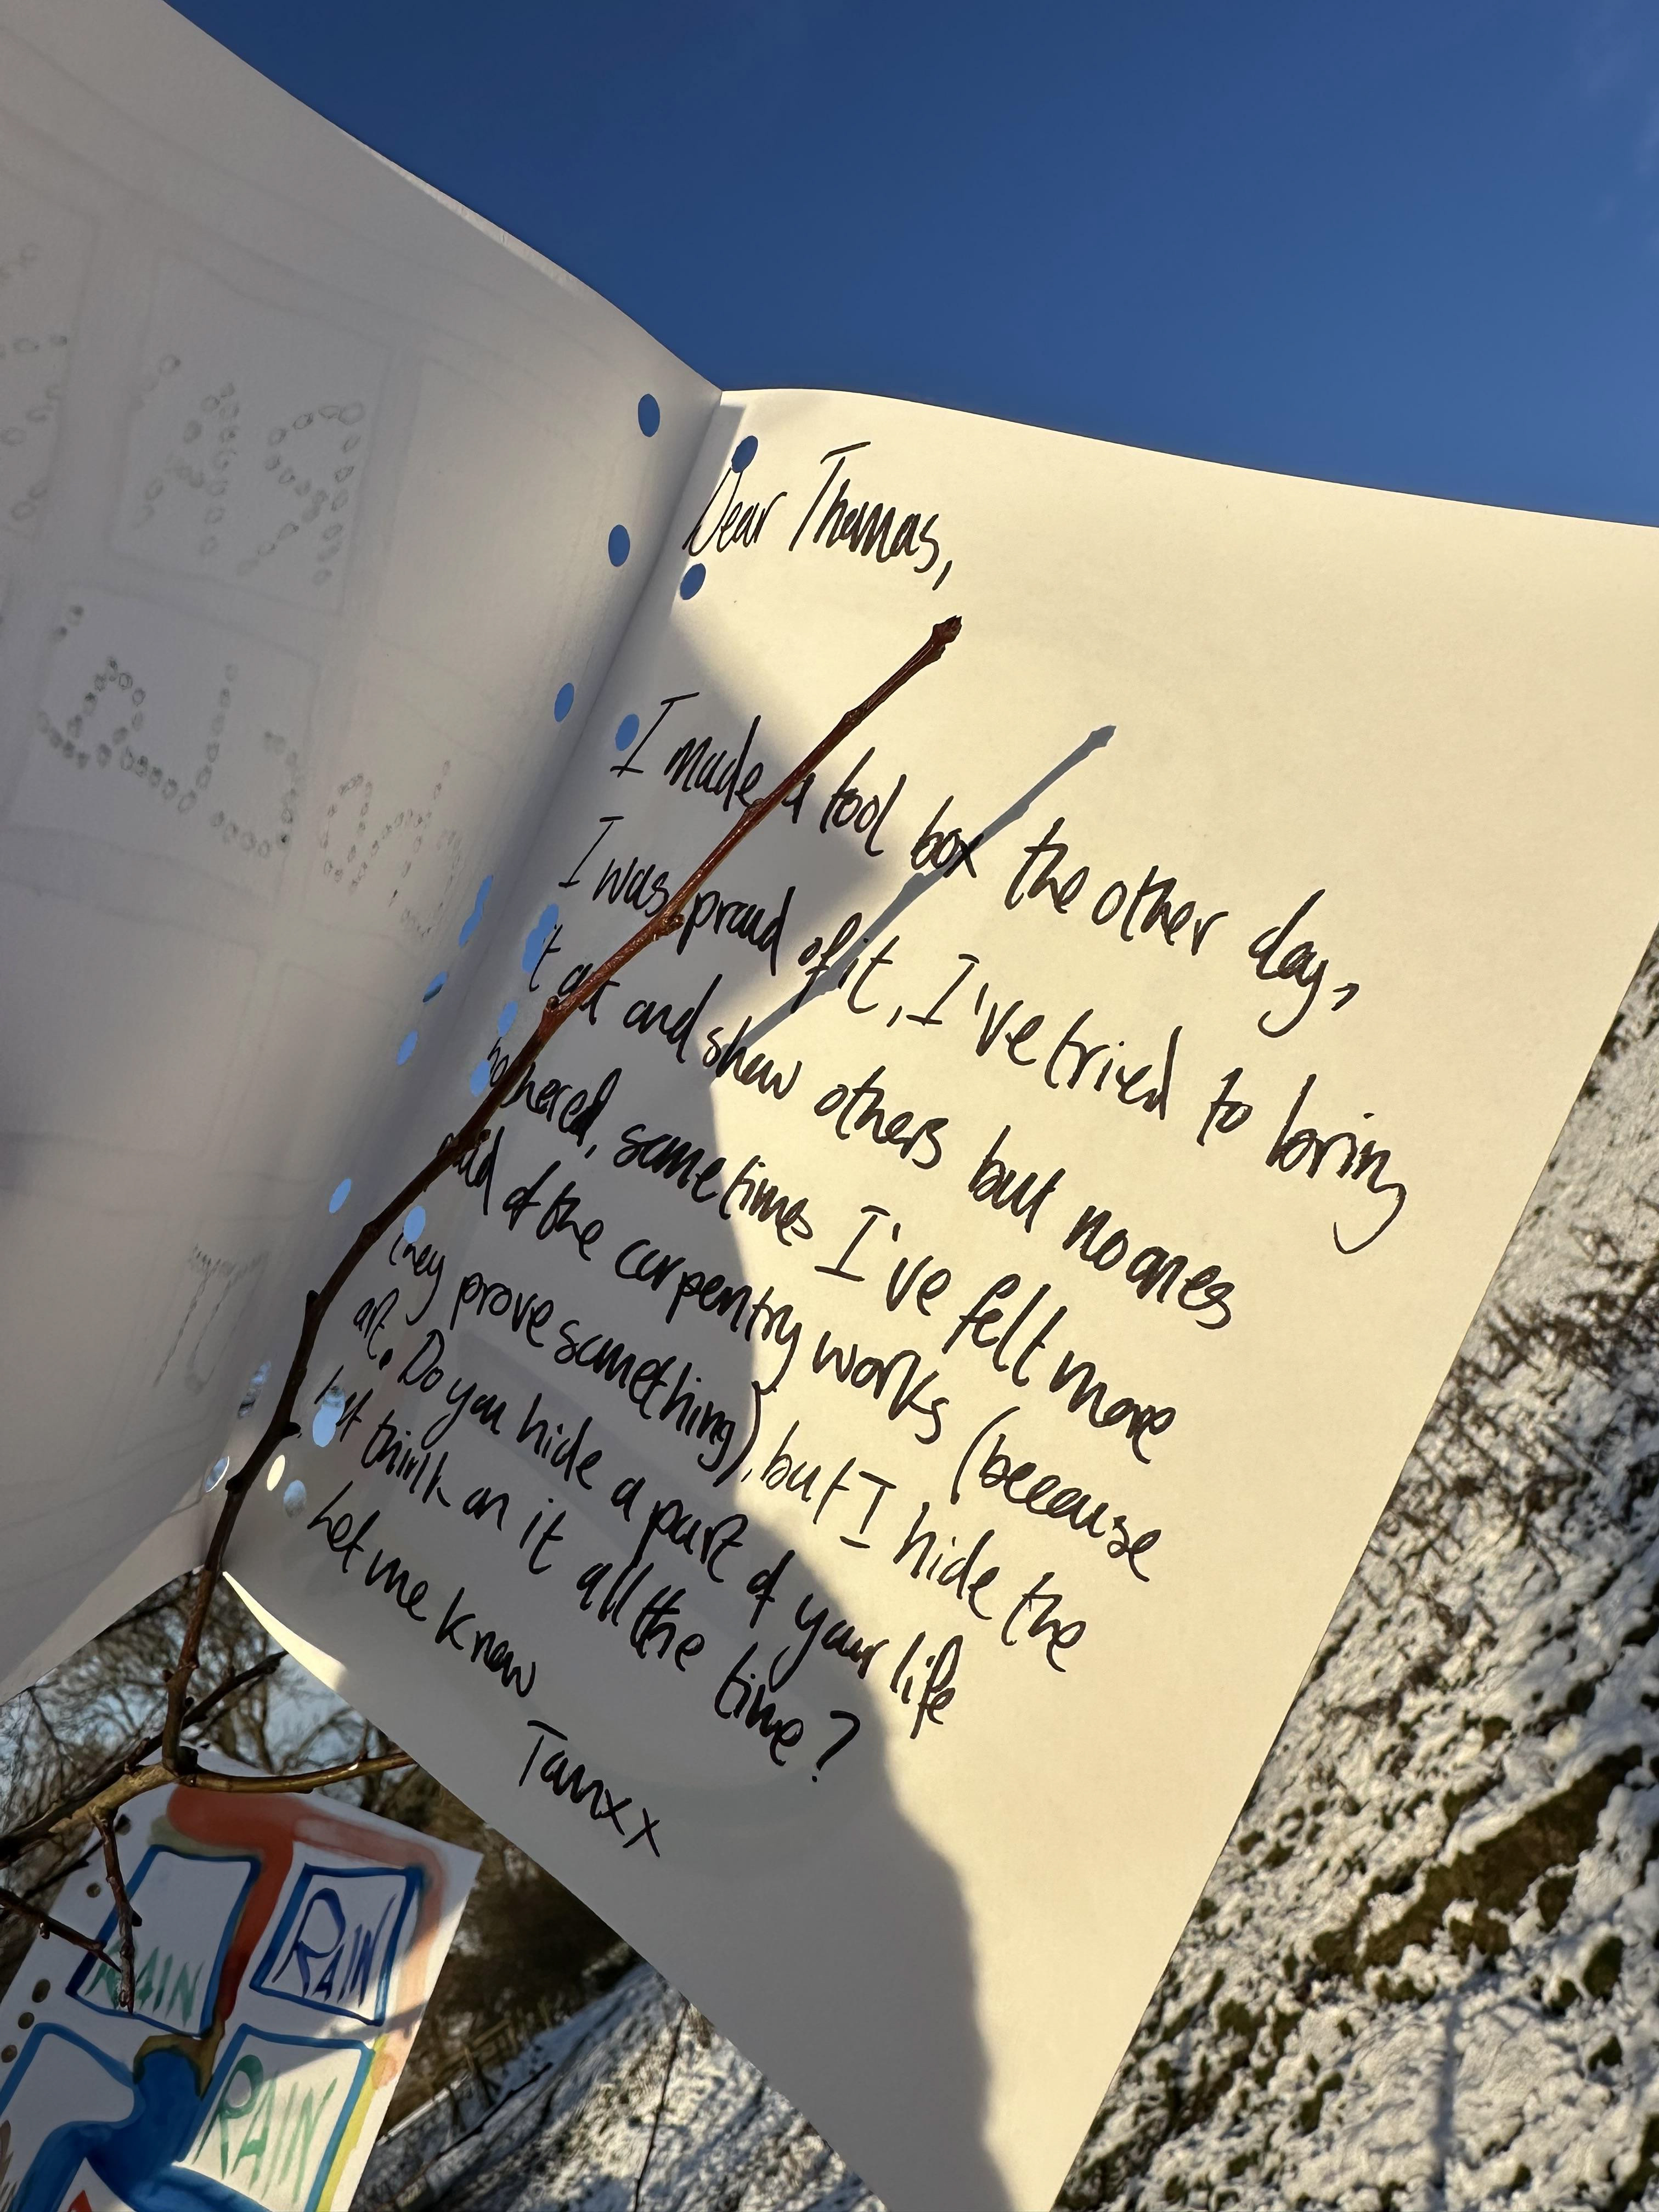 Dear Thomas,
I made a tool box the other day,
I was proud of it, I've tried to bring
it out and show others but no ones
bothered, sometimes I've felt more
proud of the carpentry works (because
they prove something), but I hide the
art. Do you hide a part of your life
but think on it all the time?
Let me know
Tom xx
RAIN
RAIN
RAIN